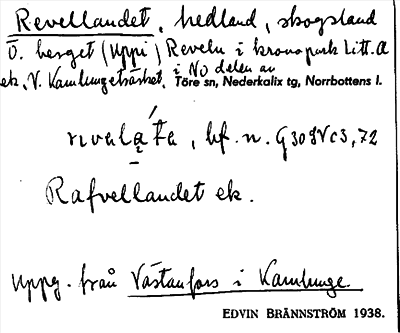 Revellandet, hedland, skogsland
Ö. berget (Uppi) Reveln i kronopark Litt. A
ek, V. Kamlungeträsket, i NO delen av Töre sn, Nederkalix tg, Norrbottens l.
bf. n. G30SVc3,72
Rafvellandet ek.
Uppg. från Västanfors i Kamlunge.
EDVIN BRÄNNSTRÖM 1938.